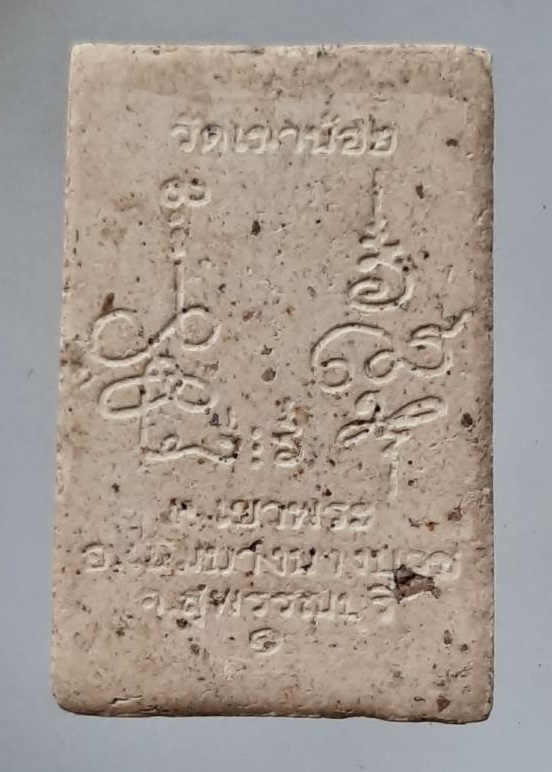 วัดเขาน้อย
ต.เขาพระ
อ.เดิมบางนางบวช
จ.สุพรรณบุรี
๑